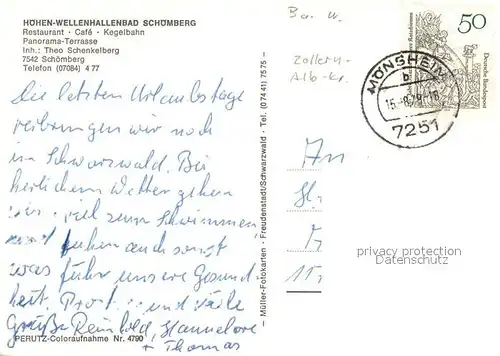 HÖHEN-WELLENHALLENBAD SCHÖMBERG
Restaurant · Café · Kegelbahn
Panorama-Terrasse
Inh.: Theo Schenkelberg
7542 Schömberg
Telefon (07084) 4 77
Die letzten Urlaubstage
verbringen wir noch
im Schwarzwald. Bei
herlichem Wetter gehen
wir viel zum Schwimmen,
und tuhen auch sonst
was führ unsere Gesund
heit. Prost und viele
Grüße Reinhold Hannelore
+ Thomas
PERUTZ-Coloraufnahme Nr. 4790
Müller-Fotokarten · Freudenstadt/Schwarzwald · Tel. (0 74 41) 75 75 –
Ba. W.
Zollern-
Alb-Kr.
50
Deutsche Bundespost
MÖNSHEIM
b
7251
An
privacy protection
Datenschutz